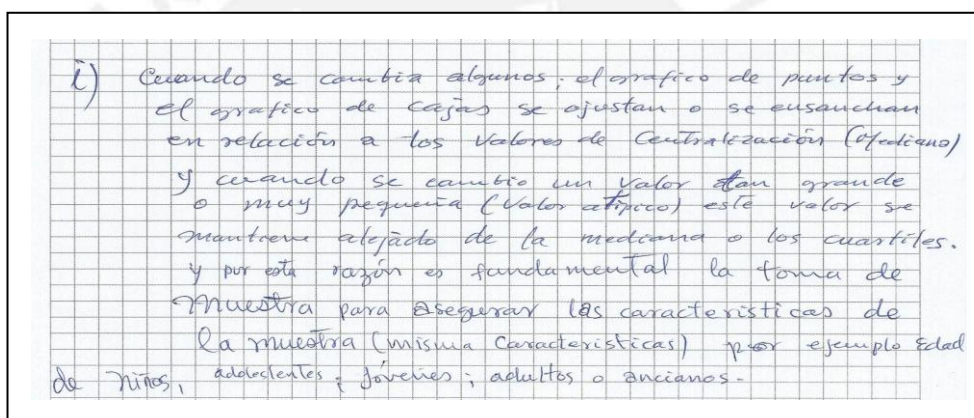 i) Cuando se cambia algunos; el grafico de puntos y
el grafico de cajas se ajustan o se ensanchan
en relación a los Valores de Centralización (Mediana)
y cuando se cambio un valor tan grande
o muy pequeña (Valor atípico) este valor se
mantiene alejado de la mediana o los cuartiles.
y por esta razón es fundamental la toma de
muestra para asegurar las caracteristicas de
la muestra (misma Caracteristicas) por ejemplo Edad
de niños, jóvenes; adultos o ancianos.